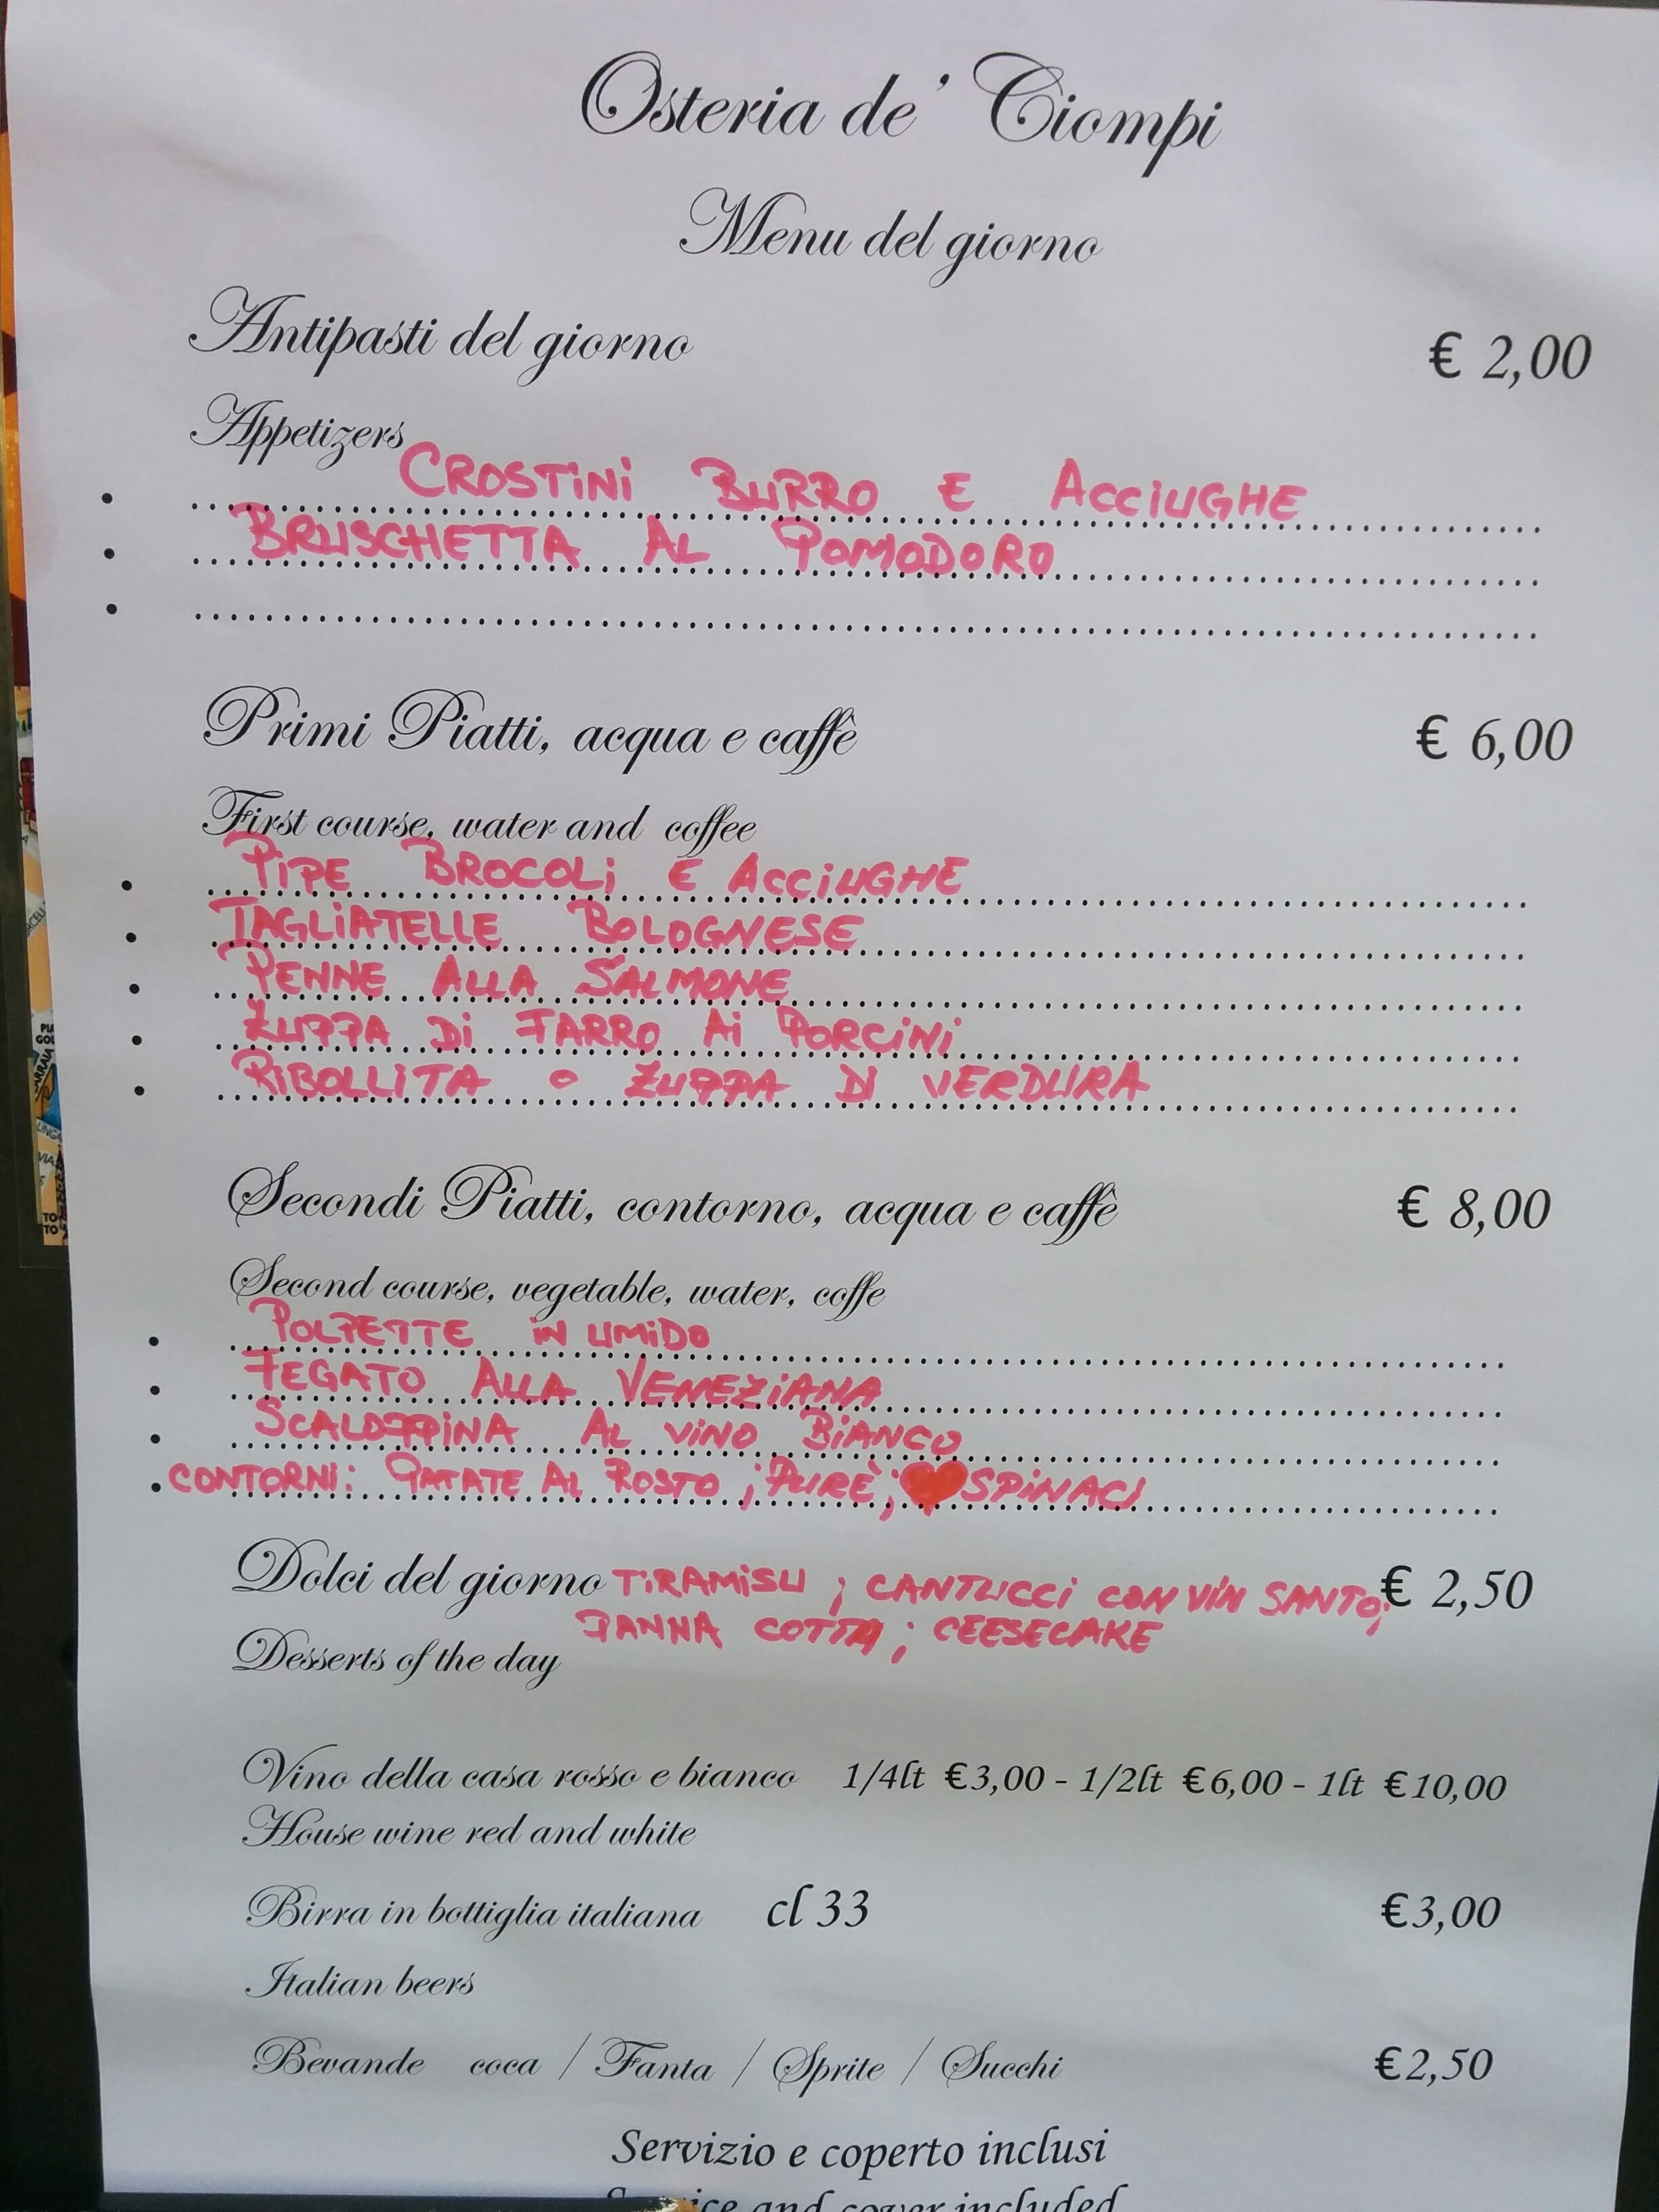 Osteria de' Ciompi
Menu del giorno
Antipasti del giorno € 2,00
Appetizers
• CROSTINI BURRO E ACCIUGHE
• BRUSCHETTA AL POMODORO
•
Primi Piatti, acqua e caffè € 6,00
First course, water and coffee
• PIPE BROCOLI E ACCIUGHE
• TAGLIATELLE BOLOGNESE
• PENNE ALLA SALMONE
• ZUPPA DI FARRO AI PORCINI
• RIBOLLITA O ZUPPA DI VERDURA
Secondi Piatti, contorno, acqua e caffè € 8,00
Second course, vegetable, water, coffe
• POLPETTE IN UMIDO
• FEGATO ALLA VENEZIANA
• SCALOPPINA AL VINO BIANCO
• CONTORNI: PATATE AL ROSTO ; PURÈ; ♥ SPINACI
Dolci del giorno TIRAMISU ; CANTUCCI CON VIN SANTO; € 2,50
PANNA COTTA ; CEESECAKE
Desserts of the day
Vino della casa rosso e bianco 1/4lt €3,00 - 1/2lt €6,00 - 1lt €10,00
House wine red and white
Birra in bottiglia italiana cl 33 €3,00
Italian beers
Bevande coca / Fanta / Sprite / Succhi €2,50
Servizio e coperto inclusi
Service and cover included